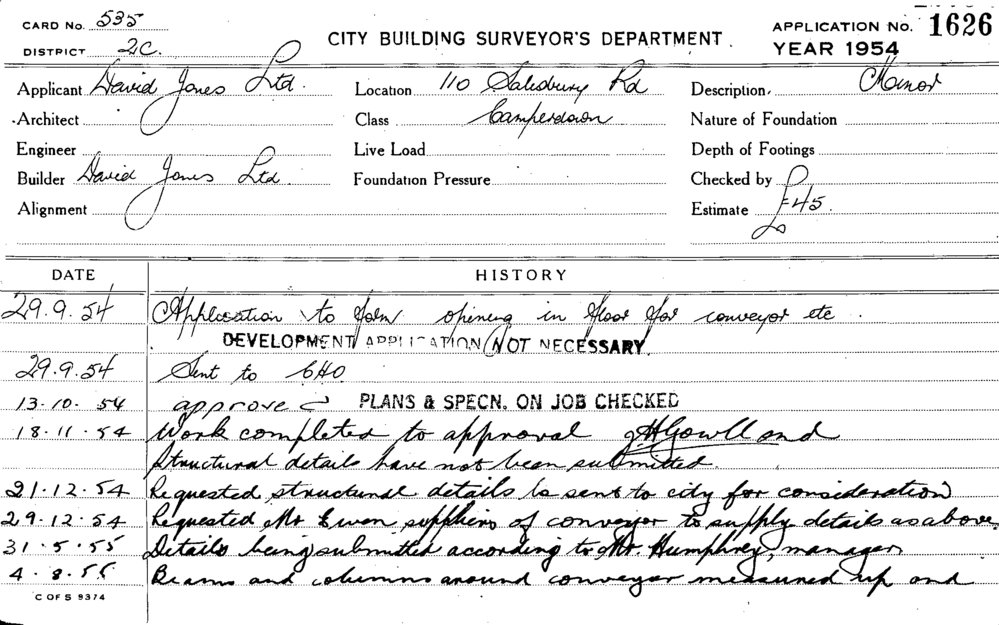 CARD No. 535
DISTRICT 2C.
CITY BUILDING SURVEYOR'S DEPARTMENT.
APPLICATION No. 1626
YEAR 1954
Applicant David Jones Ltd.
Location 110 Salisbury Rd
Description. Minor
Architect
Class Camperdown
Nature of Foundation
Engineer
Live Load
Depth of Footings
Builder David Jones Ltd.
Foundation Pressure
Checked by
Alignment
Estimate £45.
DATE HISTORY
29.9.54 Application to form opening in floor for conveyor etc.
DEVELOPMENT APPLICATION NOT NECESSARY.
29.9.54 Sent to CHO
13.10.54 approved PLANS & SPECN. ON JOB CHECKED
18.11.54 Work completed to approval and
structural details have not been submitted.
21.12.54 Requested structural details be sent to city for consideration
29.12.54 Requested Mr Ewen suppliers of conveyor to supply details as above
31.5.55 Details being submitted according to Mr. Humphrey, manager
4.8.55 Beams and columns around conveyor measured up and
C OF S 9374